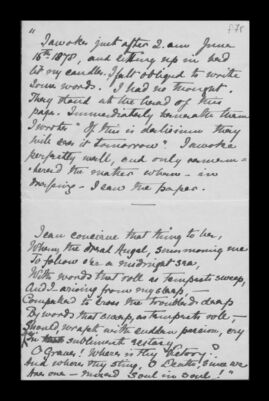 "
I awoke just after 2. a.m June
16th 1878, and sitting up in bed
lit my candle. I felt obliged to write
some words. I had no thought.
They stand at the head of this
page. Immediately beneath them
I wrote "If this is delirium they
will see it tomorrow". I awoke
perfectly well, and only remem-
-bered the matter when - in
dressing - I saw the paper.
I can conceive that thing to be,
When the dread Angel, summoning me
To follow o'er a midnight sea,
With words that roll as tempests sweep,
And I arising from my sleep,
Compelled to cross the troubled deep
By words that sweep, as tempests roll,-
Should wrapt with sudden passion, cry
In sublimest ecstasy
O Grave! Where is thy Victory?
And where thy sting, O Death, since we
Are one - mixed soul in soul!"